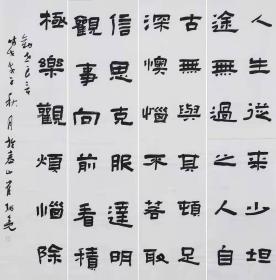 人生從來少坦
途無過之人自
古無與其頓足
深懊惱不若取
信思克服達明
觀事向前看積
極樂觀煩惱除
言
秋月於嵩山